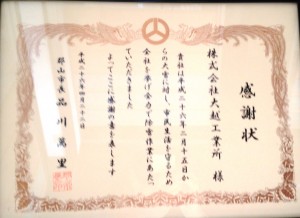 感謝状
株式会社大越工業所 様
貴社は平成二十六年二月十五日か
らの大雪に対し、市民生活を守るため
会社を挙げ全力で除雪作業にあたっ
ていただきました
よってここに感謝の意を表します
平成二十六年四月二十三日
郡山市長 品川萬里